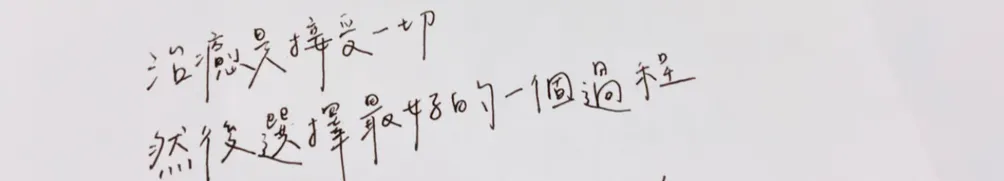 治癒是接受一切
然後選擇最好的一個過程